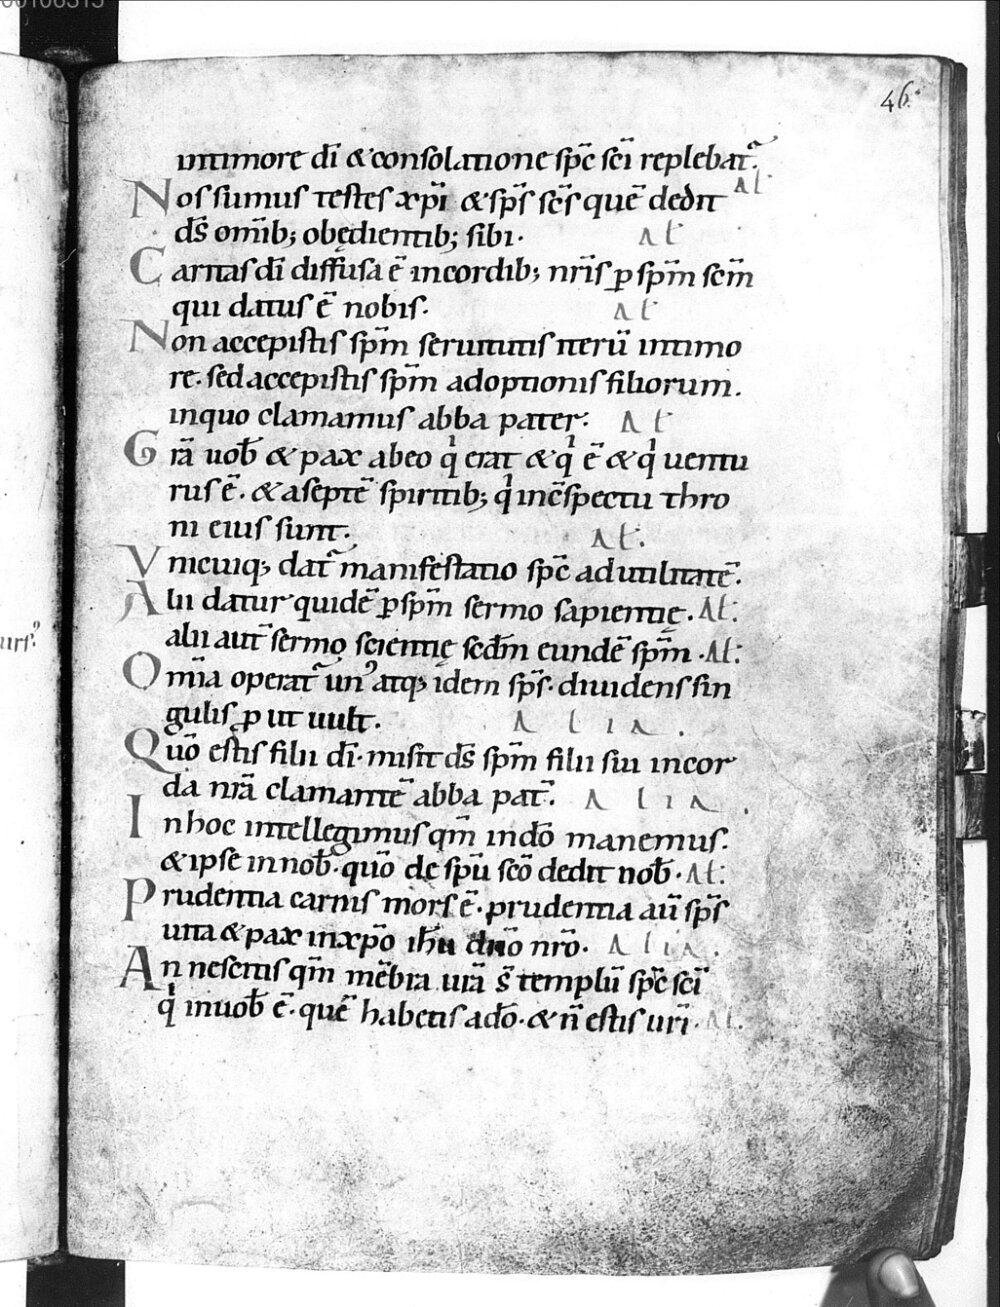 46.
intimore dī &consolatione sp̄c sc̄i replebat᷑.
Nos sumus testes xp̄i &sp̄s sc̄s quē dedit Al̄
ds̄ om̄ib; obędientib; sibi. Al̄
Caritas dī diffusa ē incordib; nr̄is ꝑ sp̄m sc̄m
qui datus ē nobis. Al̄
Non accepistis sp̄m seruitutis iterū intimo
re. sed accepistis sp̄m adoptionis filiorum.
inquo clamamus abba pater. Al̄
Grā uob̄ & pax abeo qͥ erat &qͥ ē &qͥ uentu
rus ē. &aseptē spiritib; qͥ incspectu thro
ni eius sunt. Al̄.
Vnicuiq; dat᷑ manifestatio sp̄c adutilitatē.
Alii datur quidē ꝑsp̄m sermo sapientię. Al̄.
alii aut̄ sermo scientię scd̄m eundē sp̄m. Al̄.
Om̄ia operat᷑ un᾽ atq; idem sp̄s. diuidens sin
gulis ꝓ ut uult. Alia.
Quō estis filii dī. misit ds̄ sp̄m filii sui incor
da nr̄a clamantē abba pat̄. Alia.
Inhoc intellegimus qm̄ indō manemus.
&ipse innob̄. quō de sp̄u scō dedit nob̄. Al̄.
Prudentia carnis mors ē. prudentia aū sp̄s
uita &pax inxp̄o ih̄u dn̄o nr̄o. Alia.
An nescitis qm̄ mēbra ur̄a s̄ templū sp̄c sc̄i
qͥ inuob̄ ē. quē habetis adō. &n̄ estis ur̄i. Al̄.
urs᾽